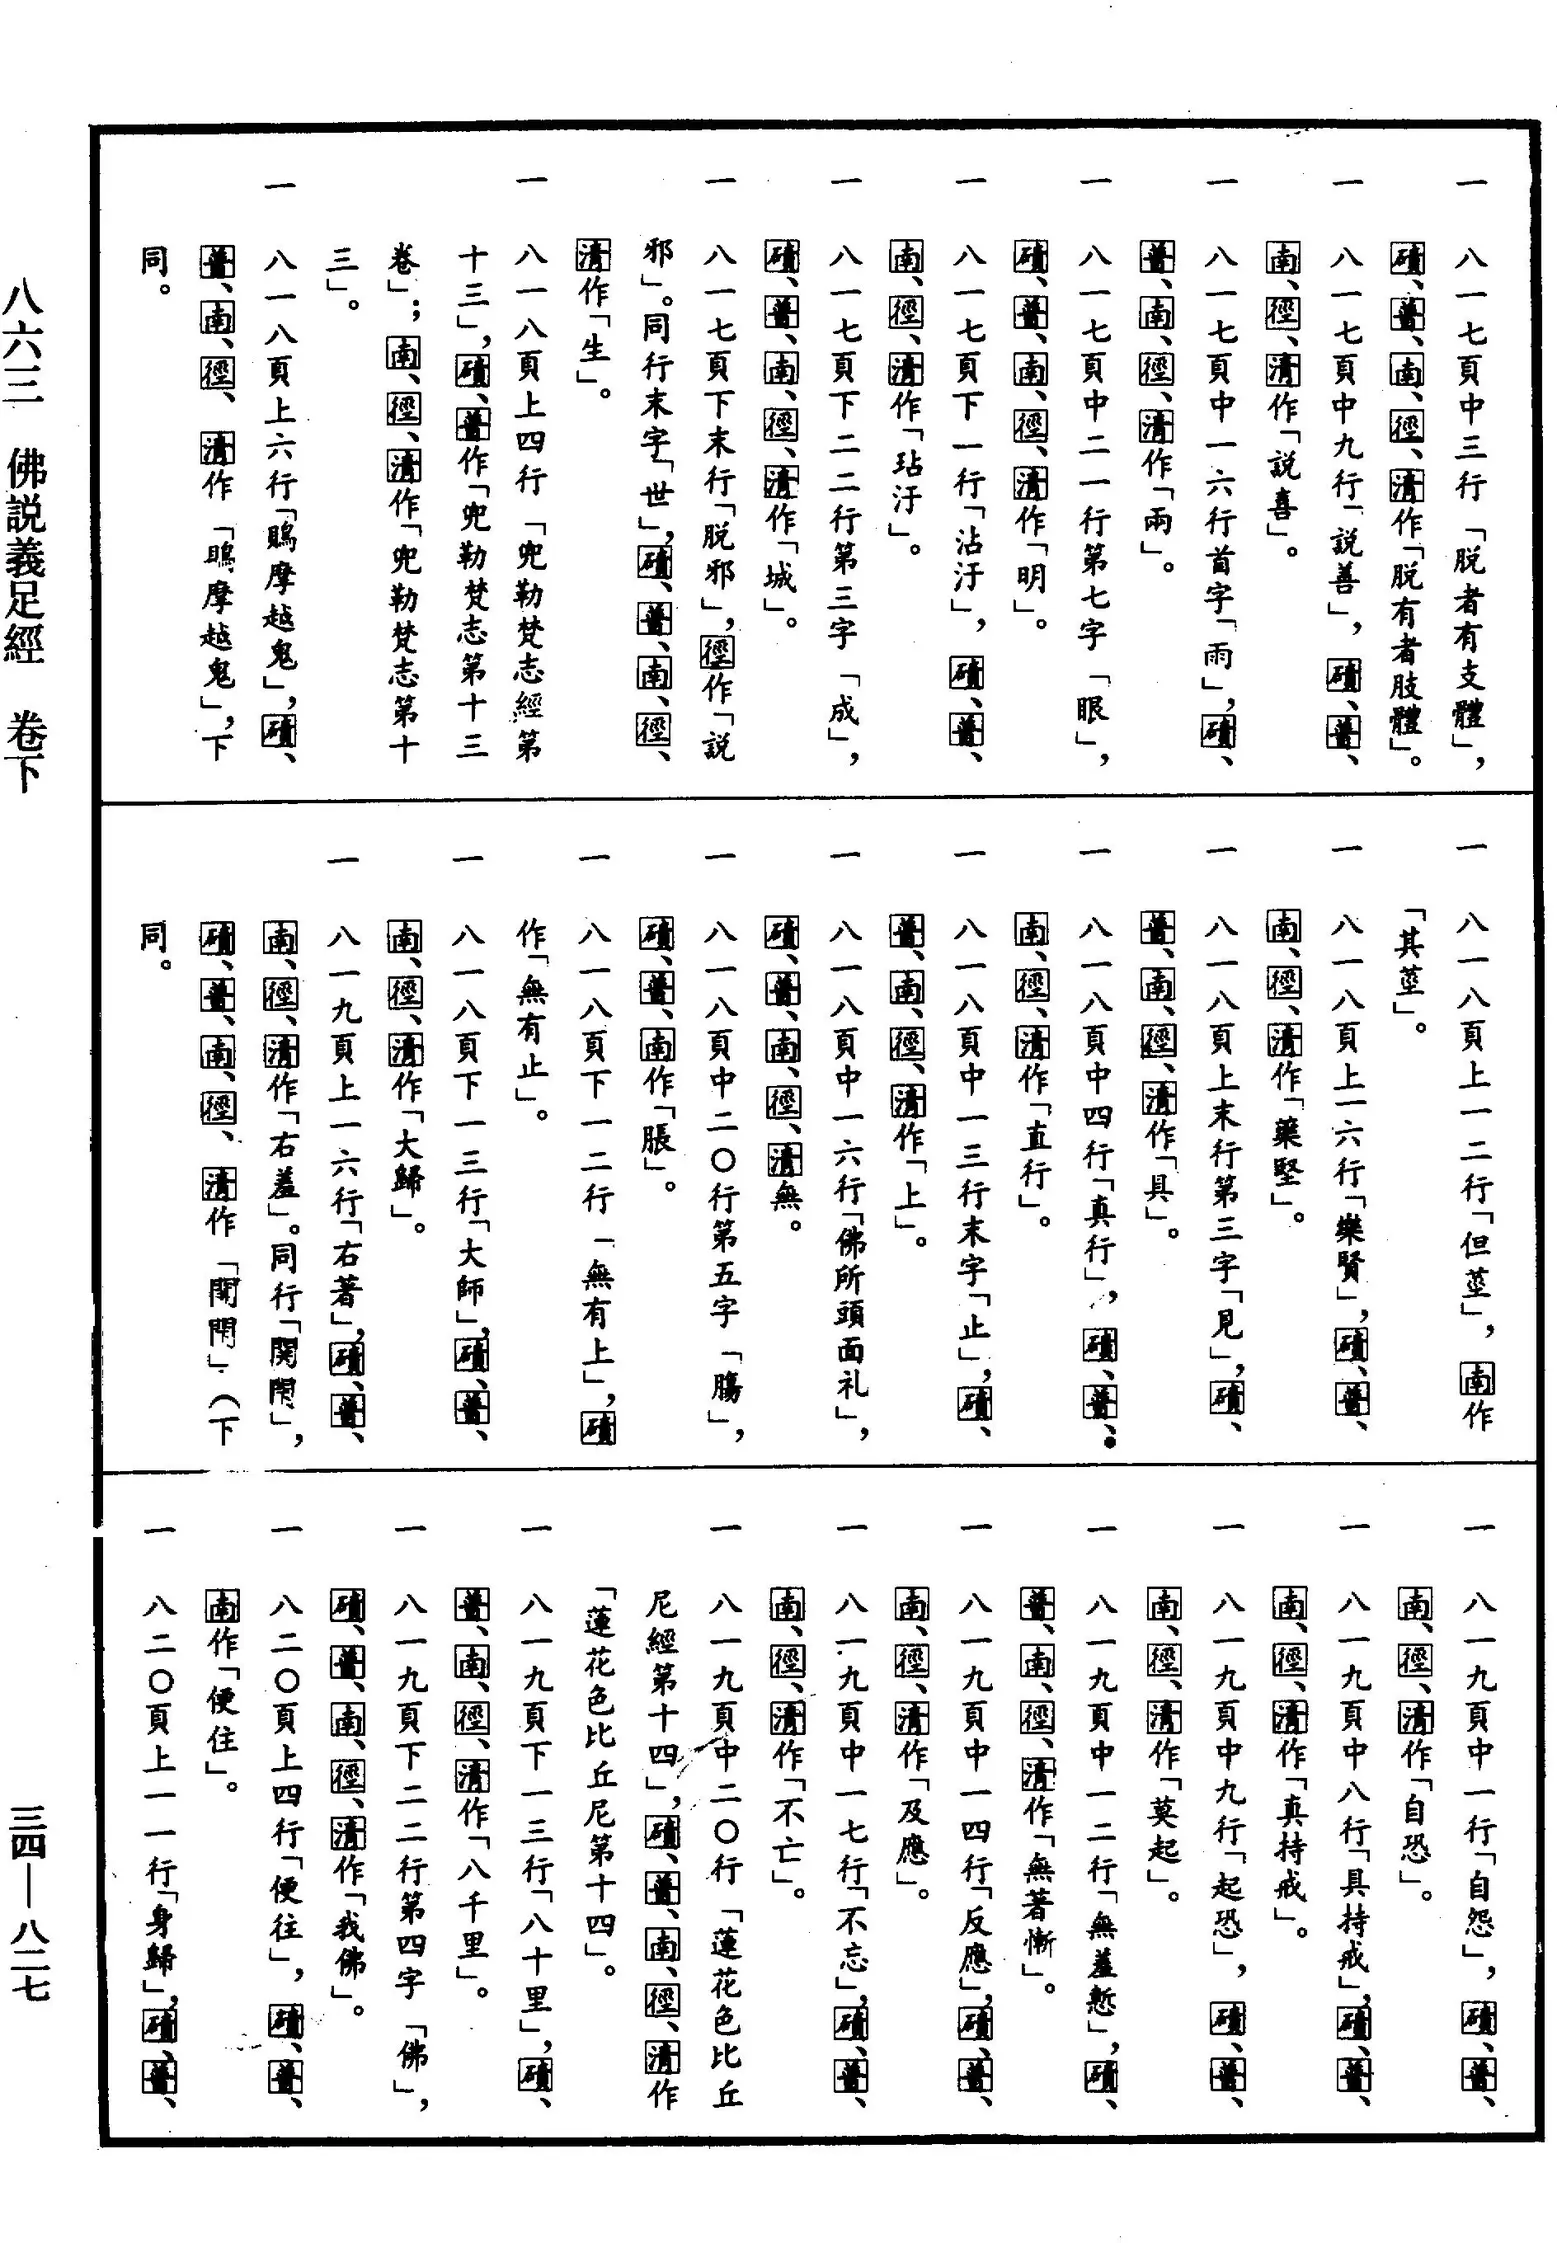 一　八一七頁中三行「脱者有支體」，
磧、普、南、徑、清作「脱有者肢體」。
一　八一七頁中九行「説善」，磧、普、
南、徑、清作「説喜」。
一　八一七頁中一六行首字「雨」，磧、
普、南、徑、清作「兩」。
一　八一七頁中二一行第七字「眼」，
磧、普、南、徑、清作「明」。
一　八一七頁下一行「沾汙」，磧、普、
南、徑、清作「玷汙」。
一　八一七頁下二二行第三字「成」，
磧、普、南、徑、清作「城」。
一　八一七頁下末行「脱邪」，徑作「説
邪」。同行末字「世」，磧、普、南、徑、
清作「生」。
一　八一八頁上四行「兜勒梵志經第
十三」，磧、普作「兜勒梵志第十三
卷」；南、徑、清作「兜勒梵志第十
三」。
一　八一八頁上六行「鵙摩越鬼」，磧、
普、南、徑、清作「鴡摩越鬼」，下
同。
一　八一八頁上一二行「但莖」，南作
「其莖」。
一　八一八頁上一六行「樂賢」，磧、普、
南、徑、清作「藥堅」。
一　八一八頁上末行第三字「見」，磧、
普、南、徑、清作「具」。
一　八一八頁中四行「真行」，磧、普、
南、徑、清作「直行」。
一　八一八頁中一三行末字「止」，磧、
普、南、徑、清作「上」。
一　八一八頁中一六行「佛所頭面礼」，
磧、普、南、徑、清無。
一　八一八頁中二〇行第五字「膓」，
磧、普、南作「脹」。
一　八一八頁下一二行「無有上」，磧
作「無有止」。
一　八一八頁下一三行「大師」，磧、普、
南、徑、清作「大歸」。
一　八一九頁上一六行「右著」，磧、普、
南、徑、清作「右羞」。同行「関閉」，
磧、普、南、徑、清作「開閉」（下
同。
一　八一九頁中一行「自怨」，磧、普、
南、徑、清作「自恐」。
一　八一九頁中八行「具持戒」，磧、普、
南、徑、清作「真持戒」。
一　八一九頁中九行「起恐」，磧、普、
南、徑、清作「莫起」。
一　八一九頁中一二行「無羞慙」，磧、
普、南、徑、清作「無著慚」。
一　八一九頁中一四行「反應」，磧、普、
南、徑、清作「及應」。
一　八一九頁中一七行「不忘」，磧、普、
南、徑、清作「不亡」。
一　八一九頁中二〇行「蓮花色比丘
尼經第十四」，磧、普、南、徑、清作
「蓮花色比丘尼第十四」。
一　八一九頁下一三行「八十里」，磧、
普、南、徑、清作「八千里」。
一　八一九頁下二二行第四字「佛」，
磧、普、南、徑、清作「我佛」。
一　八二〇頁上四行「便往」，磧、普、
南作「便住」。
一　八二〇頁上一一行「身歸」，磧、普、
八六三　佛説義足經　卷下
三四—八二七